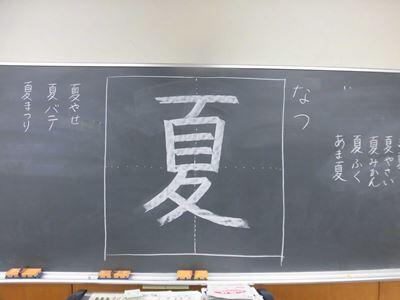 夏やさい
夏みかん
夏ふく
あま夏
なつ
夏
夏やせ
夏バテ
夏まつり